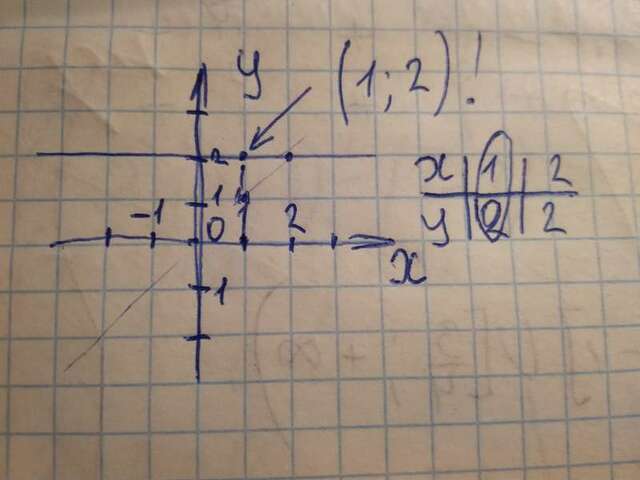 y (1; 2)!
2
1
-1 0 1 2
x
1
x | 1 | 2
y | 2 | 2